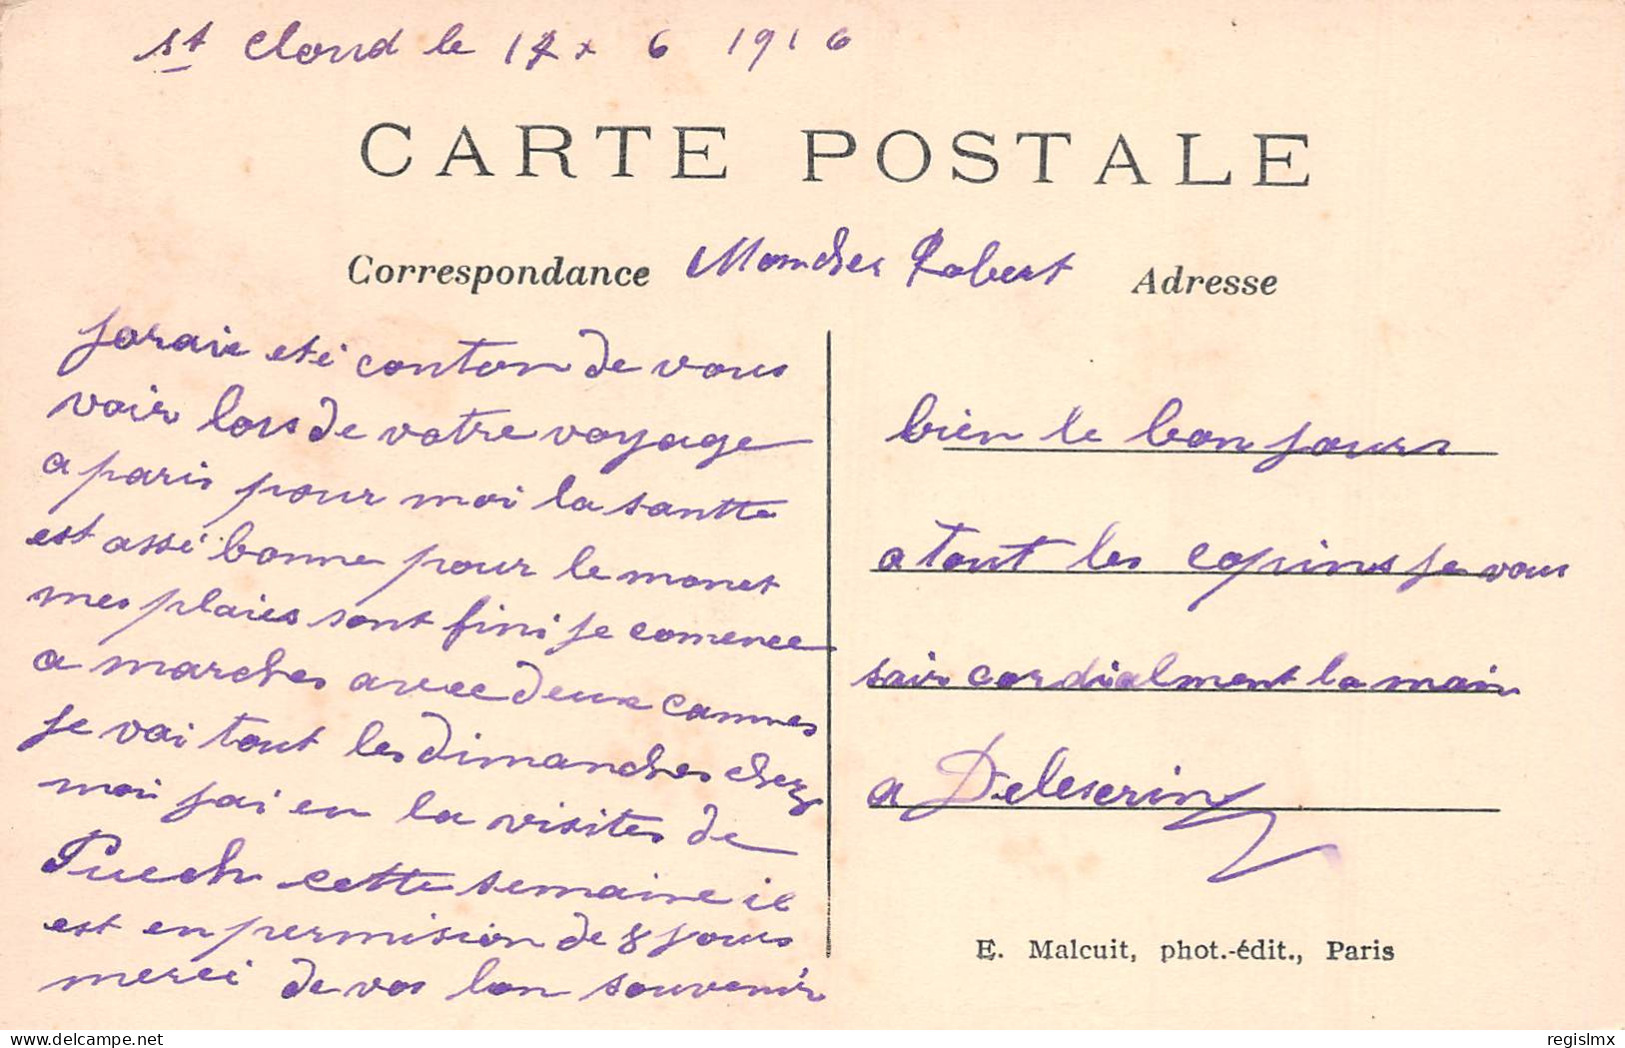 st Cloud le 17 x 6 1916
CARTE POSTALE
Correspondance Moncher Robert Adresse
joraie eté conton de vous
voir lors de votre voyage
a paris pour moi la santte
est assé bonne pour le monet
mes plaies sont fini je comence
a marcher avec deux cannes
je vai tout les dimanches chez
moi jai eu la visites de
Puech cette semaine il
est en permision de 8 jours
merci de vos bon souvenir
bien le bonjours
a tout les copins je vous
sair cordialment la main
a Deleserin
E. Malcuit, phot.-édit., Paris
regislmx